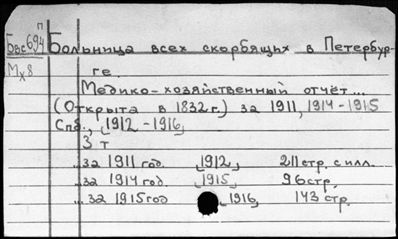 П
Бвс694 Больница всех скорбящих в Петербур-
Мх8 ге.
Медико-хозяйственный отчёт...
(Открыта в 1832 г.) за 1911, 1914-1915
Спб., 1912-1916,
3 т
..за 1911 год. 1912 211 стр. с илл.
..за 1914 год. 1915, 96 стр.
...за 1915 год 1916, 143 стр.